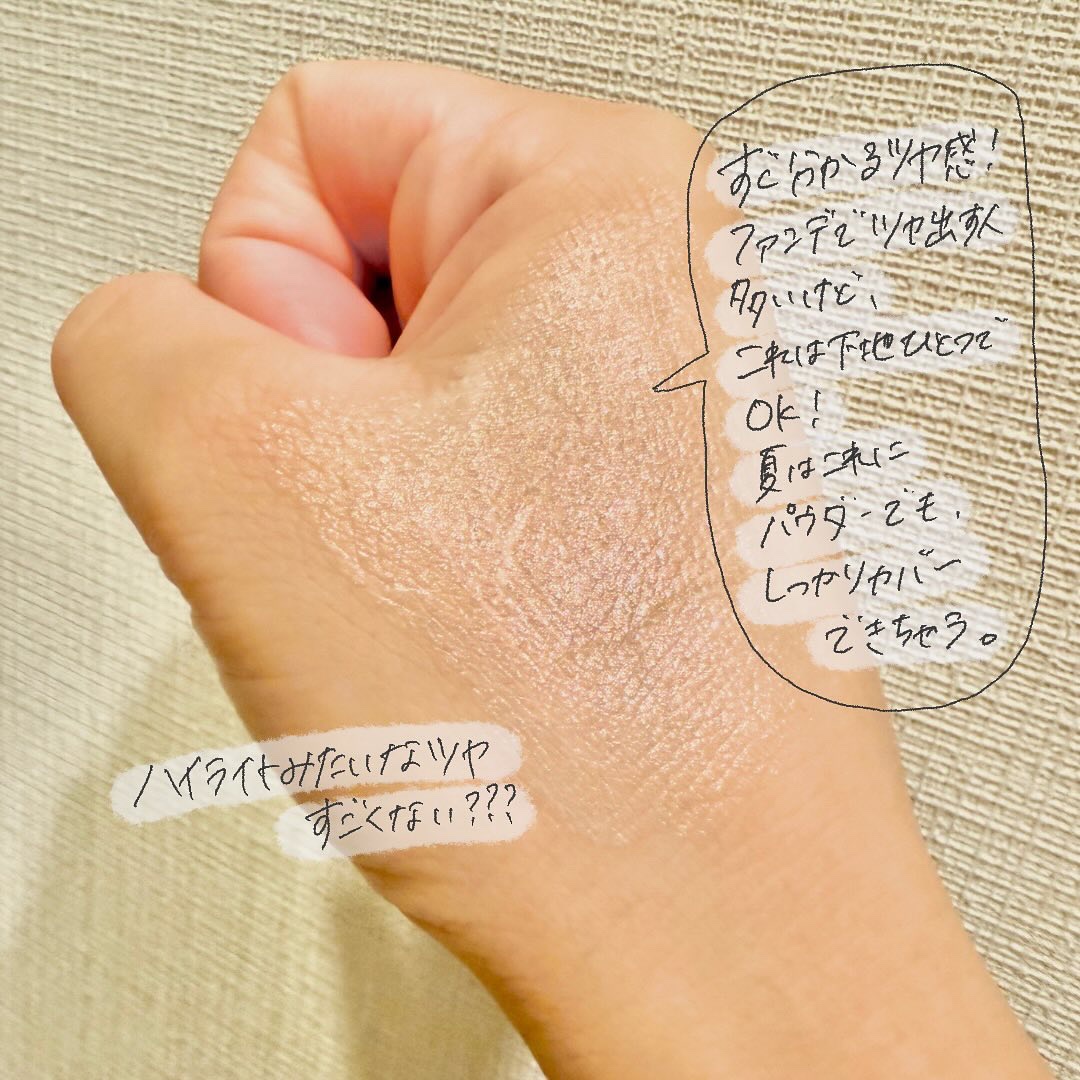 すぐ分かるツヤ感!
ファンデでツヤ出す人
多いけど、
これは下地ひとつで
OK!
夏はこれに
パウダーでも、
しっかりカバー
できちゃう。
ハイライトみたいなツヤ
すごくない???